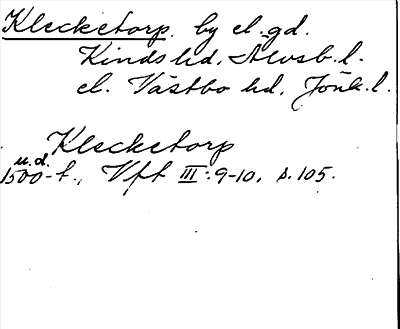 Klecketorp. by el. gd.
Kinds hd, Älvsb. l.
el. Västbo hd, Jönk. l.
Klecketorp
u.d.
1500-t., Vft III: 9-10, s. 105.